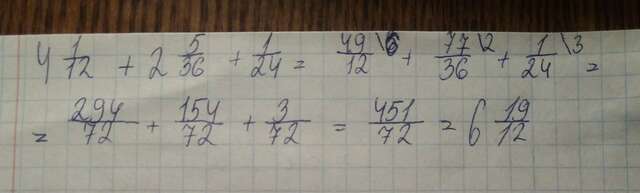 4 1/12 + 2 5/36 + 1/24 = 49/12 \6 + 77/36 \2 + 1/24 \3 =
= 294/72 + 154/72 + 3/72 = 451/72 = 6 19/12